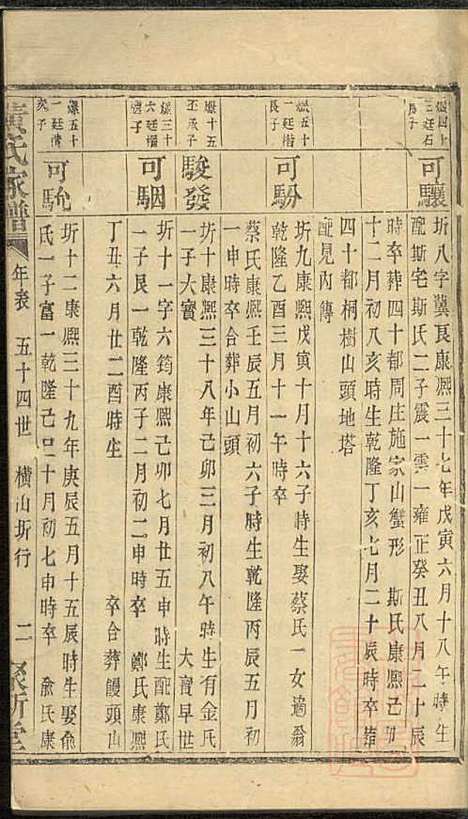 四十
三廷石
長子
可驤
圻八字冀良康熙三十七年戊寅六月十八午時生
配斯宅斯氏二子震一雲一雍正癸丑八月二十辰
時卒葬四十都周庄施家山蟹形 斯氏康熙己卯
十二月初八亥時生乾隆丁亥七月二十辰時卒葬
四十都桐樹山頭地塔
配見內傳
五十
一廷楷
長子
可馚
圻九康熙戊寅十月十六子時生娶蔡氏一女適翁
乾隆乙酉三月十一午時卒
蔡氏康熙壬辰五月初六子時生乾隆丙辰五月初
一申時卒合葬小山頭
十五
丕承子
駿發
圻十康熙三十八年己卯三月初八午時生有金氏
一子大寶 大寶早世
三十
六廷
子
可駰
圻十一字六筠康熙己卯七月廿五申時生配鄭氏
一子良一乾隆丙子二月初二申時卒 鄭氏康熙
丁丑六月廿二酉時生 卒合葬饅頭山
五十
一廷
次子
可馻
圻十二康熙三十九年庚辰五月十五辰時生娶俞
氏一子富一乾隆己巳十月初七申時卒 俞氏康
黃氏家譜 年表 五十四世 橫山圻行 二 聚斯堂